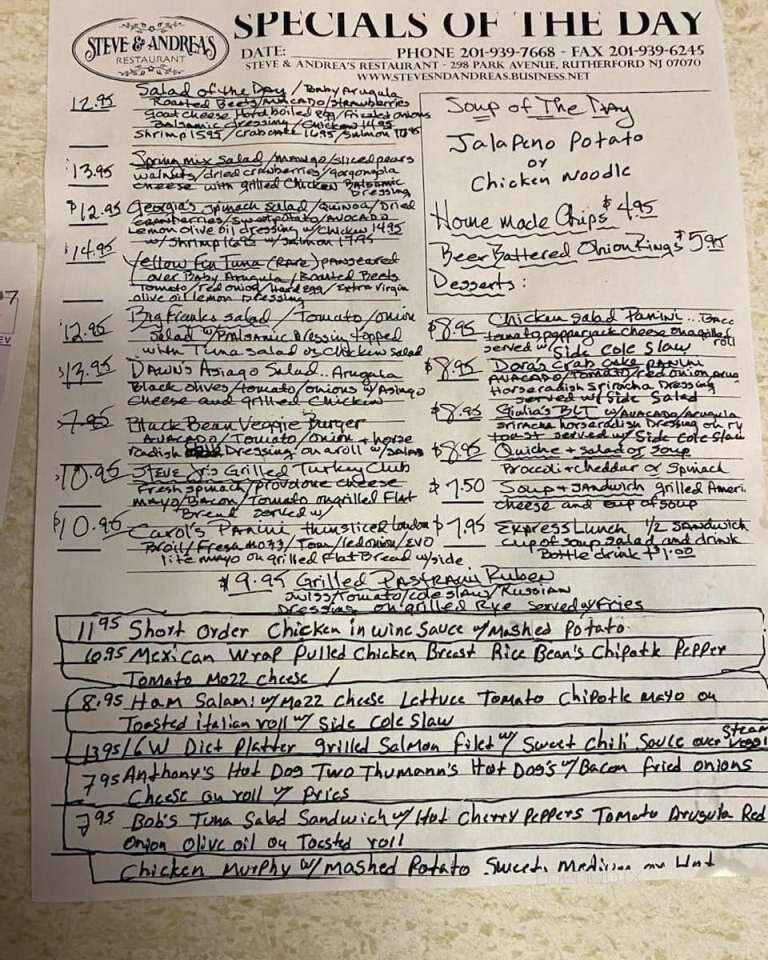 STEVE & ANDREA'S
RESTAURANT
SPECIALS OF THE DAY
DATE: PHONE 201-939-7668 - FAX 201-939-6245
STEVE & ANDREA'S RESTAURANT - 298 PARK AVENUE, RUTHERFORD NJ 07070
WWW.STEVESNDANDREAS.BUSINESS.NET
12.95 Salad of the Day / Baby Arugula
Roasted Beets/Avacado/Strawberries
Goat cheese Hard boiled egg/ onions
Balsamic dressing/Chicken 14.95
Shrimp 15.95/Crabcake 16.95/Salmon
13.95 Spring mix Salad/mango/sliced pears
walnuts/dried cranberries/gorgonzola
cheese with grilled Chicken Balsamic
Dressing
$12.95 Georgia's Spinach Salad/Quinoa/Dried
cranberries/sweet potato/AVOCADO
Lemon olive oil dressing w/chicken 14.95
w/Shrimp 16.95 w/Salmon 17.95
$14.95 Yellow Fin Tuna (Rare) panseared
over Baby Arugula/Roasted Beets
Tomato/red onion/Hard egg/Extra virgin
olive oil lemon Dressing
12.95 Big franks salad/Tomato/onion
Salad w/Balsamic Dressing topped
with Tuna salad or Chicken salad
$13.95 Dawn's Asiago Salad.. Arugula
Black olives/tomato/onions w/Asiago
cheese and grilled Chicken
7.95 Black Bean Veggie Burger
Avacado/Tomato/onion + horse
radish Dressing on a roll w/salad
$10.95 Steve Jr's Grilled Turkey Club
Fresh spinach/provolone cheese
mayo/Bacon/Tomato on grilled Flat
Bread served w/
$10.95 Carol's Panini thinsliced London
Broil/Fresh mozz/Tom/redonion/EVO
lite mayo on grilled Flat Bread w/side
Soup of The Day
Jalapeno Potato
or
Chicken Noodle
Home made Chips $4.95
Beer Battered Onion Rings $5.95
Desserts:
$8.95 Chicken Salad Panini...
tomato pepperjack cheese on a grilled
roll
served w/ Side Cole Slaw
$8.95 Dora's Crab cake PANINI
AVACADO/Tomato/red onion
Horseradish Sriracha Dressing
served w/Side Salad
$8.95 Giulia's BLT w/AVACADO/Arugula
sriracha horseradish Dressing on ry
toast served w/ Side Cole Slaw
$8.95 Quiche + salad or soup
Broccoli + cheddar or Spinach
$7.50 Soup + Sandwich grilled Ameri
cheese and cup of soup
$7.95 Express Lunch 1/2 sandwich
cup of soup salad and drink
Bottle drink +$1.00
$9.95 Grilled Pastrami Ruben
swiss/Tomato/cole slaw/Russian
Dressing on grilled Rye served w/fries
11 95 Short Order Chicken in wine Sauce w/Mashed Potato
6.95 Mexican Wrap Pulled Chicken Breast Rice Bean's Chipotle Pepper
Tomato Mozz cheese /
8.95 Ham Salami w/Mozz cheese Lettuce Tomato Chipotle mayo on
Toasted italian roll w/ Side Cole Slaw
13 95 LGW Diet Platter grilled Salmon filet w/ Sweet Chili Sauce over Steam
7 95 Anthony's Hot Dog Two Thumann's Hot Dog's w/Bacon fried onions
Cheese on roll w/ fries
7 95 Bob's Tuna Salad Sandwich w/Hot Cherry Peppers Tomato Arugula Red
onion Olive oil on Toasted roll
Chicken Murphy w/ Mashed Potato Sweet, Medium or Hot